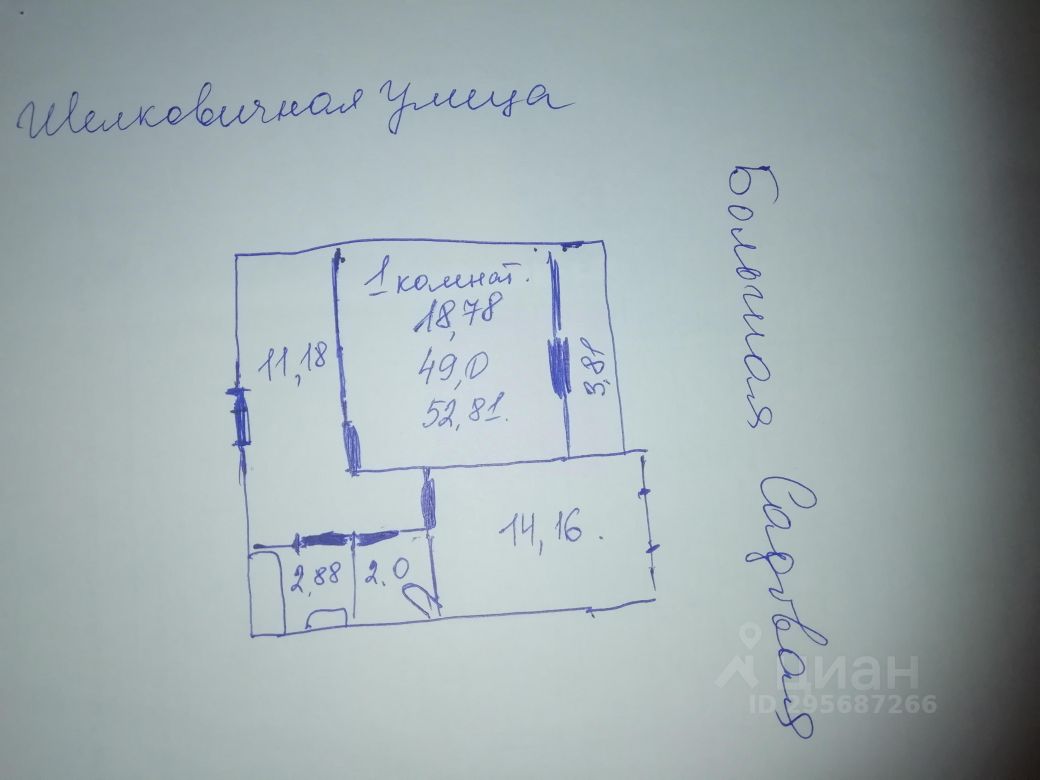 Шелковичная улица
Большая Садовая
1 комнат.
18,78
49,0
52,81.
11,18
3,81
14,16.
2,88
2.0
циан
ID 295687266